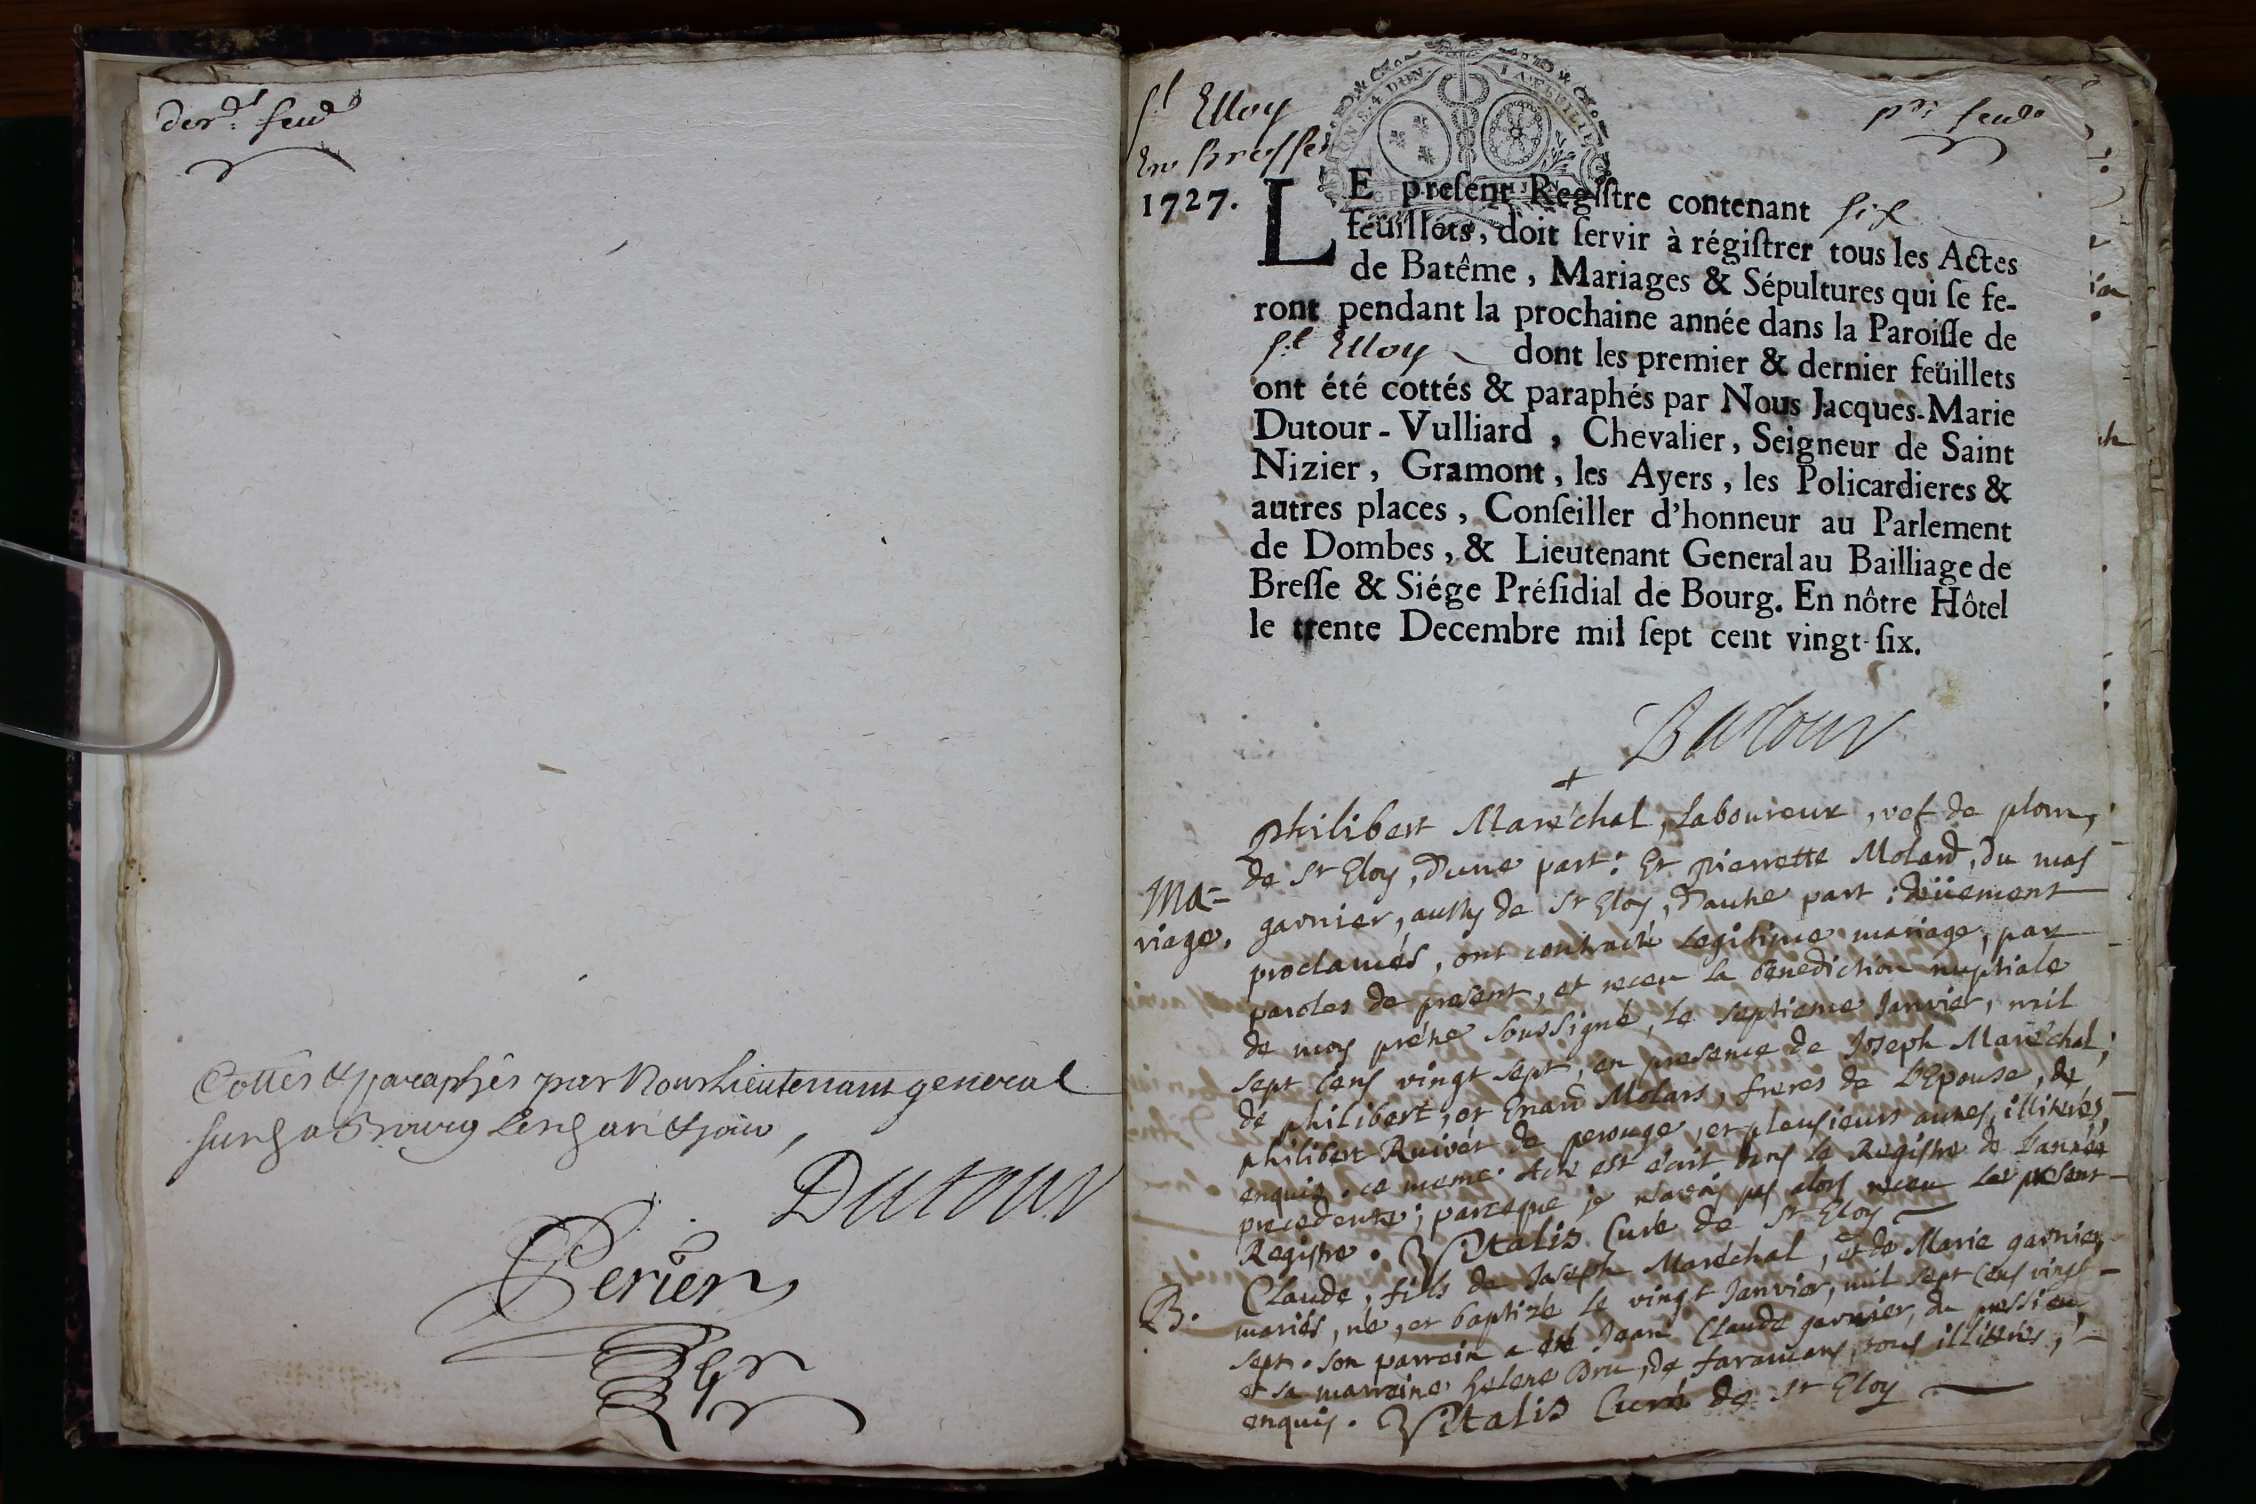 St Elloy
En Bresse
pr. feuo
1727.
LE present Registre contenant six
feüillets, doit servir à régistrer tous les Actes
de Batême, Mariages & Sépultures qui se fe-
ront pendant la prochaine année dans la Paroisse de
St Elloy dont les premier & dernier feüillets
ont été cottés & paraphés par Nous Jacques-Marie
Dutour-Vulliard, Chevalier, Seigneur de Saint
Nizier, Gramont, les Ayers, les Policardieres &
autres places, Conseiller d'honneur au Parlement
de Dombes, & Lieutenant General au Bailliage de
Bresse & Siége Présidial de Bourg. En nôtre Hôtel
le trente Decembre mil sept cent vingt-six.
Dutour
Ma-
riage.
philibert Maréchal, Laboureur, vef de
de St Eloy, D'une part: Et pierrette Molard, du mas
garnier, aussy de St Eloy, D'autre part: düement
proclamés, ont contracté legitime mariage, par
paroles de present, et receu la benediction nuptiale
de moy prétre soussigné, le septieme Janvier, mil
sept cens vingt sept, en presence de Joseph Maréchal,
de philibert, et Molars, freres de L'Epouse, de
philibert de perouge, et plusieurs autres, illiterés,
enquis. ce meme Acte est écrit dans le Registre de L'année
precedente; parceque je n'avois pas alors receu Le present
Registre. Vitalis Curé de St Eloy
B.
Claude, fils de Joseph Maréchal, et de Marie garnier,
mariés, né, et baptizé le vingt Janvier, mil sept cens vingt
sept. son parrein a été Jean Claude garnier, du
et sa marreine helene Bru, de faramans, tous illiterés,
enquis. Vitalis Curé de St Eloy
der. feuo
Cottés & paraphés par Nous Lieutenant general
susd a Bourg Lesd an & jour,
Dutour
Perier